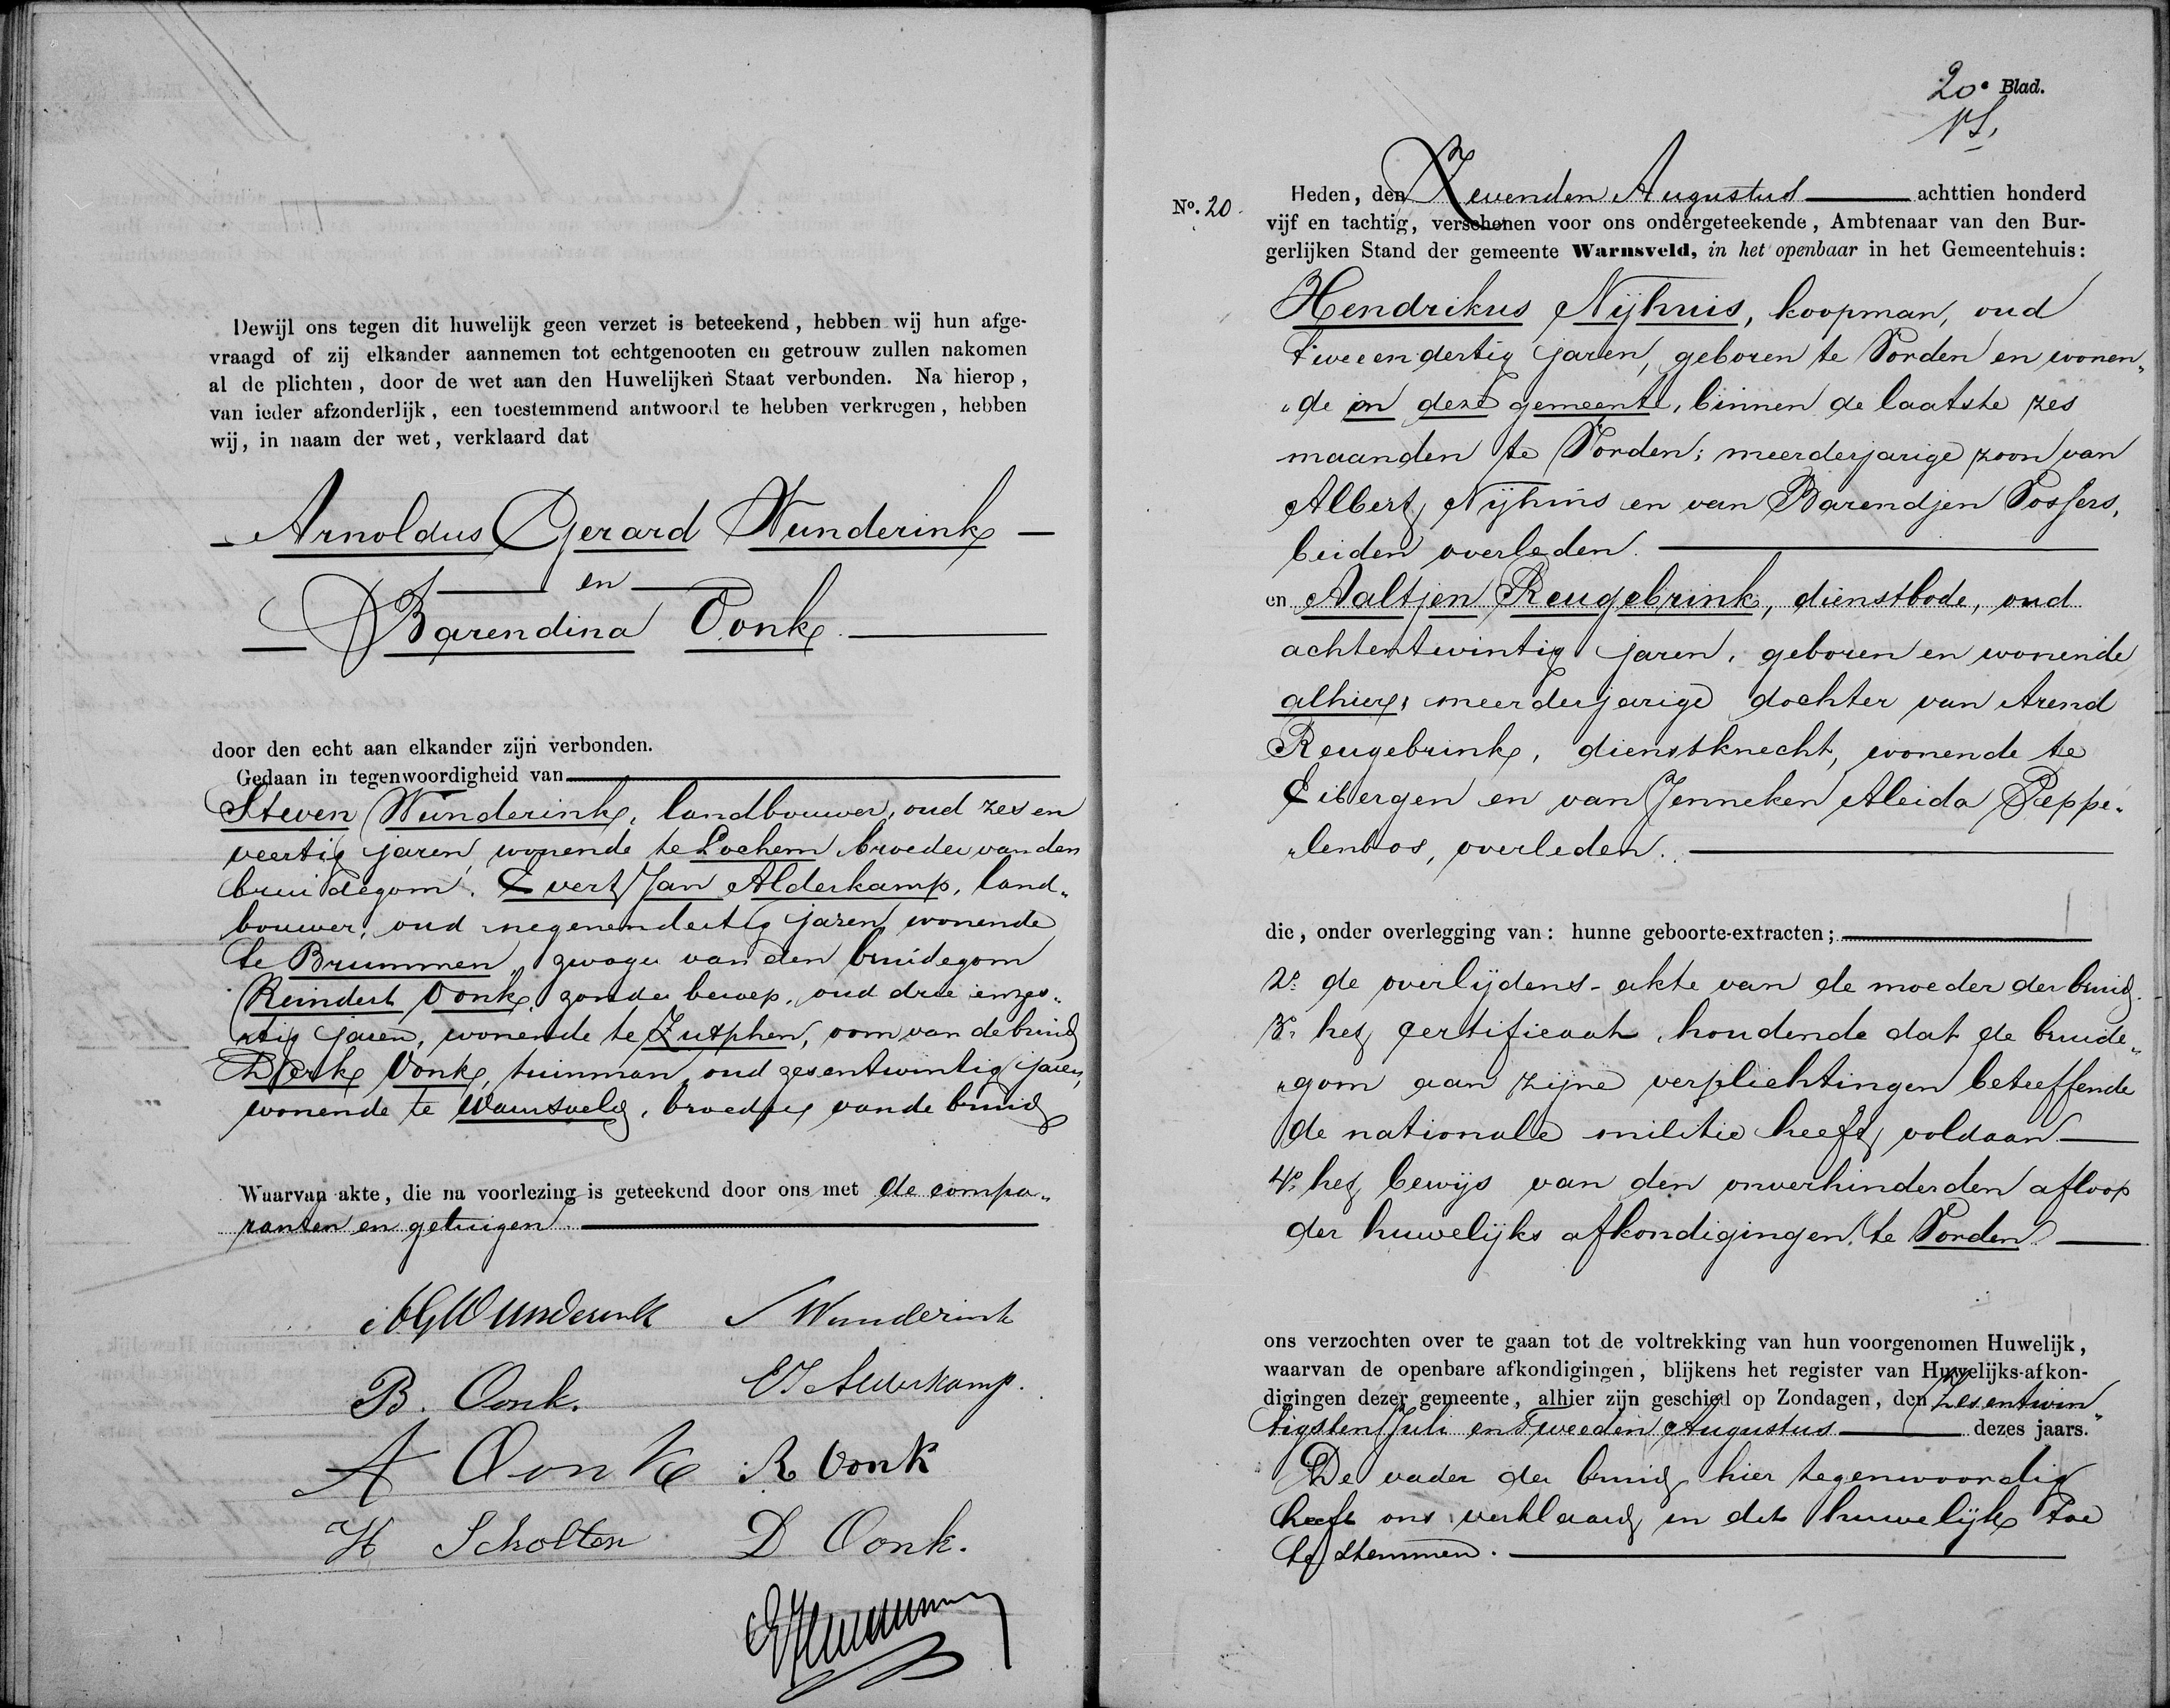 Dewijl ons tegen dit huwelijk geen verzet is beteekend, hebben wij hun afge-
vraagd of zij elkander aannemen tot echtgenooten en getrouw zullen nakomen
al de plichten, door de wet aan den Huwelijken Staat verbonden. Na hierop,
van ieder afzonderlijk, een toestemmend antwoord te hebben verkregen, hebben
wij, in naam der wet, verklaard dat
Arnoldus Gerard Wunderink
en
Barendina Oonk
door den echt aan elkander zijn verbonden.
Gedaan in tegenwoordigheid van
Steven Wunderink, landbouwer, oud zes en
veertig jaren, wonende te Lochem broeder van den
bruidegom. Evert Jan Alderkamp, land„
bouwer, oud negenendertig jaren wonende
te Brummen, zwager van den bruidegom
Reindert Oonk, zonder beroep, oud drie enzes„
„tig jaren, wonende te Zutphen, oom van de bruid
Derk Oonk, tuinman, oud zesentwintig jaren,
wonende te Warnsveld, broeder van de bruid
Waarvan akte, die na voorlezing is geteekend door ons met de compa„
ranten en getuigen
AGWunderink S Wunderink
B. Oonk. EJ Alderkamp.
A Oonk R Oonk
H Scholten D Oonk.
20e Blad.
No. 20. Heden, den Zevenden Augustus achttien honderd
vijf en tachtig, verschenen voor ons ondergeteekende, Ambtenaar van den Bur-
gerlijken Stand der gemeente Warnsveld, in het openbaar in het Gemeentehuis:
Hendrikus Nijhuis, koopman, oud
tweeendertig jaren, geboren te Vorden en wonen„
„de in deze gemeente, binnen de laatste zes
maanden te Vorden; meerderjarige zoon van
Albert Nijhuis en van Barendjen Vossers,
beiden overleden.
en Aaltjen Reugebrink, dienstbode, oud
achtentwintig jaren, geboren en wonende
alhier, meerderjarige dochter van Arend
Reugebrink, dienstknecht, wonende te
Eibergen en van Jenneken Aleida Peppe„
„lenbos, overleden.
die, onder overlegging van: hunne geboorte-extracten;
2o. de overlijdens-akte van de moeder der bruid.
3o. het certificaat, houdende dat de bruide„
„gom aan zijne verplichtingen betreffende
de nationale militie heeft voldaan
4o. het bewijs van den onverhinderden afloop
der huwelijks afkondigingen te Vorden
ons verzochten over te gaan tot de voltrekking van hun voorgenomen Huwelijk,
waarvan de openbare afkondigingen, blijkens het register van Huwelijks-afkon-
digingen dezer gemeente, alhier zijn geschied op Zondagen, den Zesentwin„
tigsten Juli en Tweeden Augustus dezes jaars.
De vader der bruid hier tegenwoordig
heeft ons verklaard in dit huwelijk toe
te stemmen.